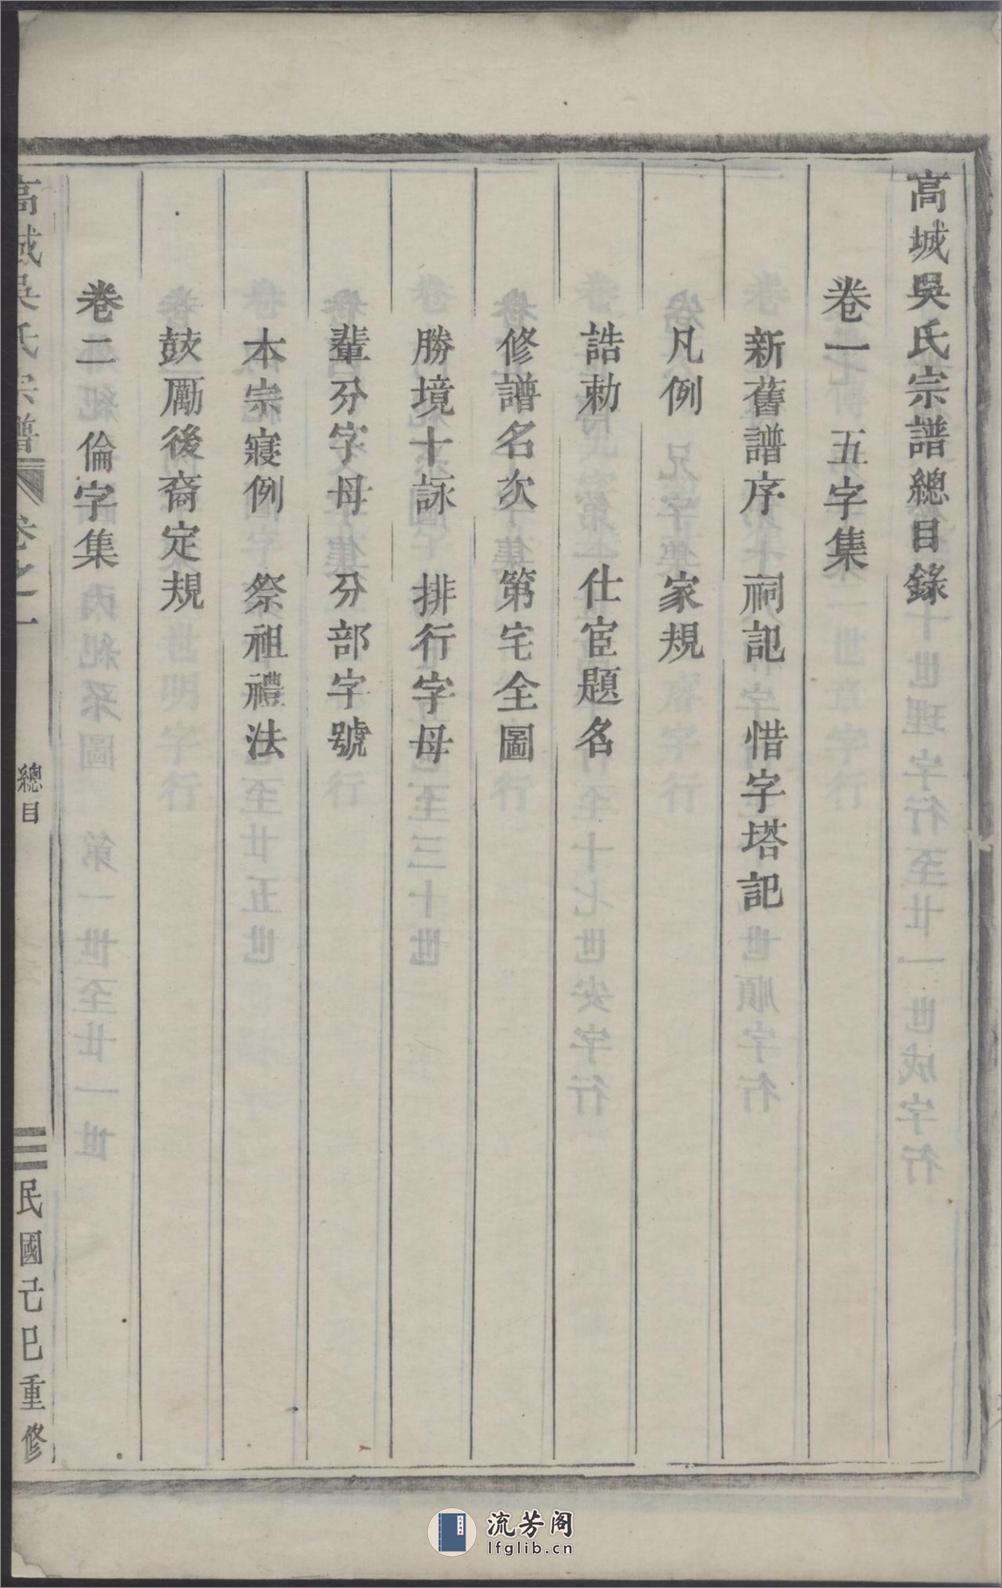 高城吳氏宗譜總目錄
卷一　五字集
新舊譜序　祠記　惜字塔記
凡例　家規
誥勅　仕宦題名
修譜名次　第宅全圖
勝境十詠　排行字母
輩分字母　分部字號
本宗寢例　祭祖禮法
鼓勵後裔定規
卷二　倫字集
高城吳氏宗譜　卷之一　總目　民國己巳重修
流芳阁
lfglib.cn